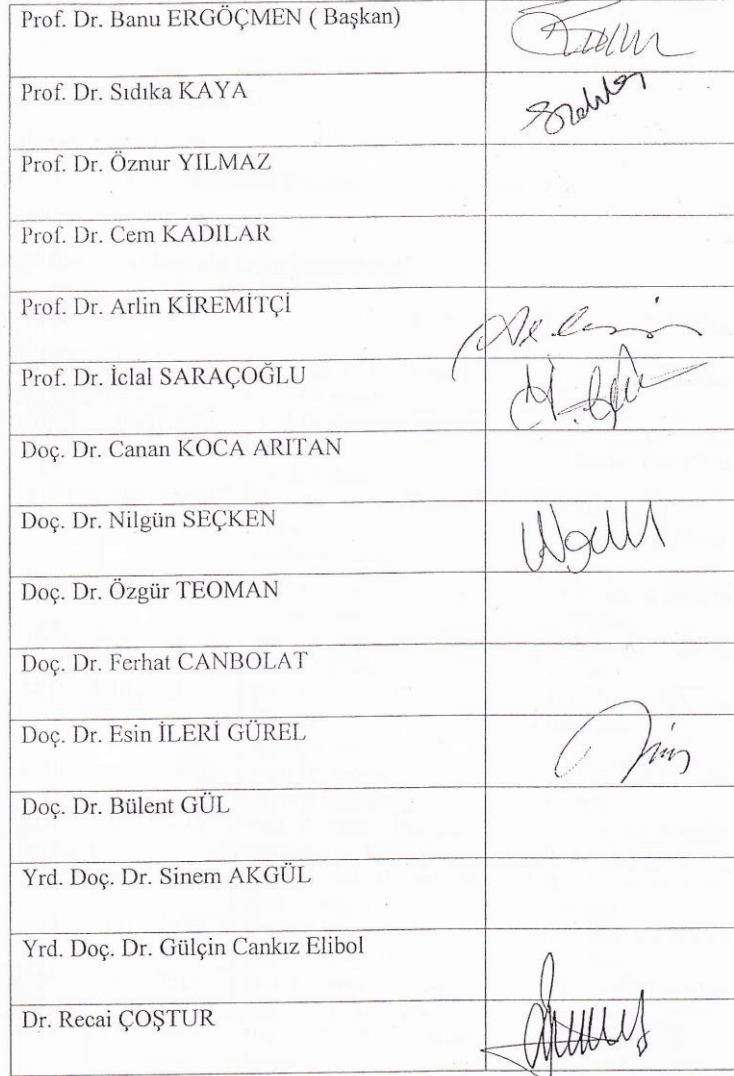 Prof. Dr. Banu ERGÖÇMEN ( Başkan)
Prof. Dr. Sıdıka KAYA
Prof. Dr. Öznur YILMAZ
Prof. Dr. Cem KADILAR
Prof. Dr. Arlin KİREMİTÇİ
Prof. Dr. İclal SARAÇOĞLU
Doç. Dr. Canan KOCA ARITAN
Doç. Dr. Nilgün SEÇKEN
Doç. Dr. Özgür TEOMAN
Doç. Dr. Ferhat CANBOLAT
Doç. Dr. Esin İLERİ GÜREL
Doç. Dr. Bülent GÜL
Yrd. Doç. Dr. Sinem AKGÜL
Yrd. Doç. Dr. Gülçin Cankız Elibol
Dr. Recai ÇOŞTUR